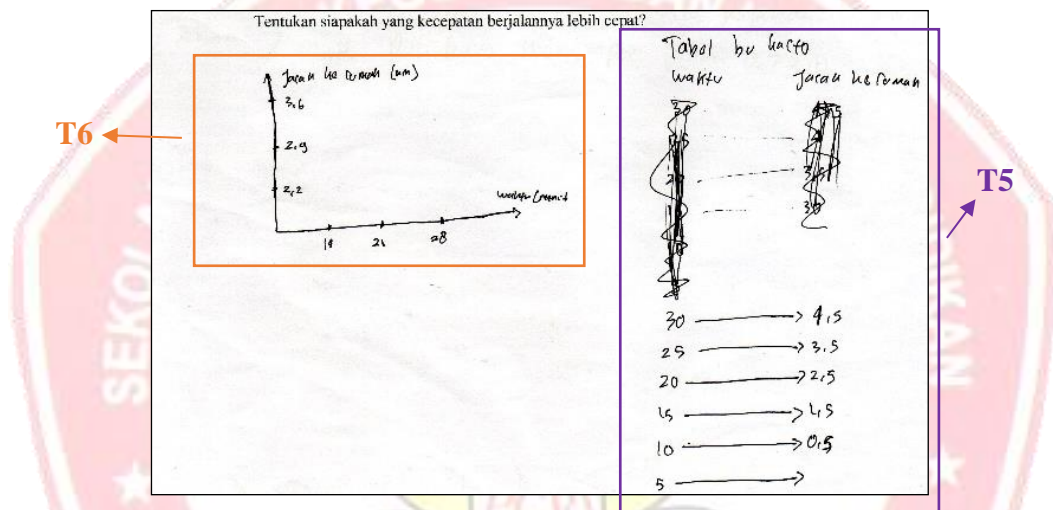 Tentukan siapakah yang kecepatan berjalannya lebih cepat?
T6
Jarak ke rumah (km)
3,6
2,9
2,2
waktu (menit
14
21
28
Tabel bu
waktu Jarak ke rumah
30 4,5
25 3,5
20 2,5
15 1,5
10 0,5
5
T5
SEKOL
IKAN